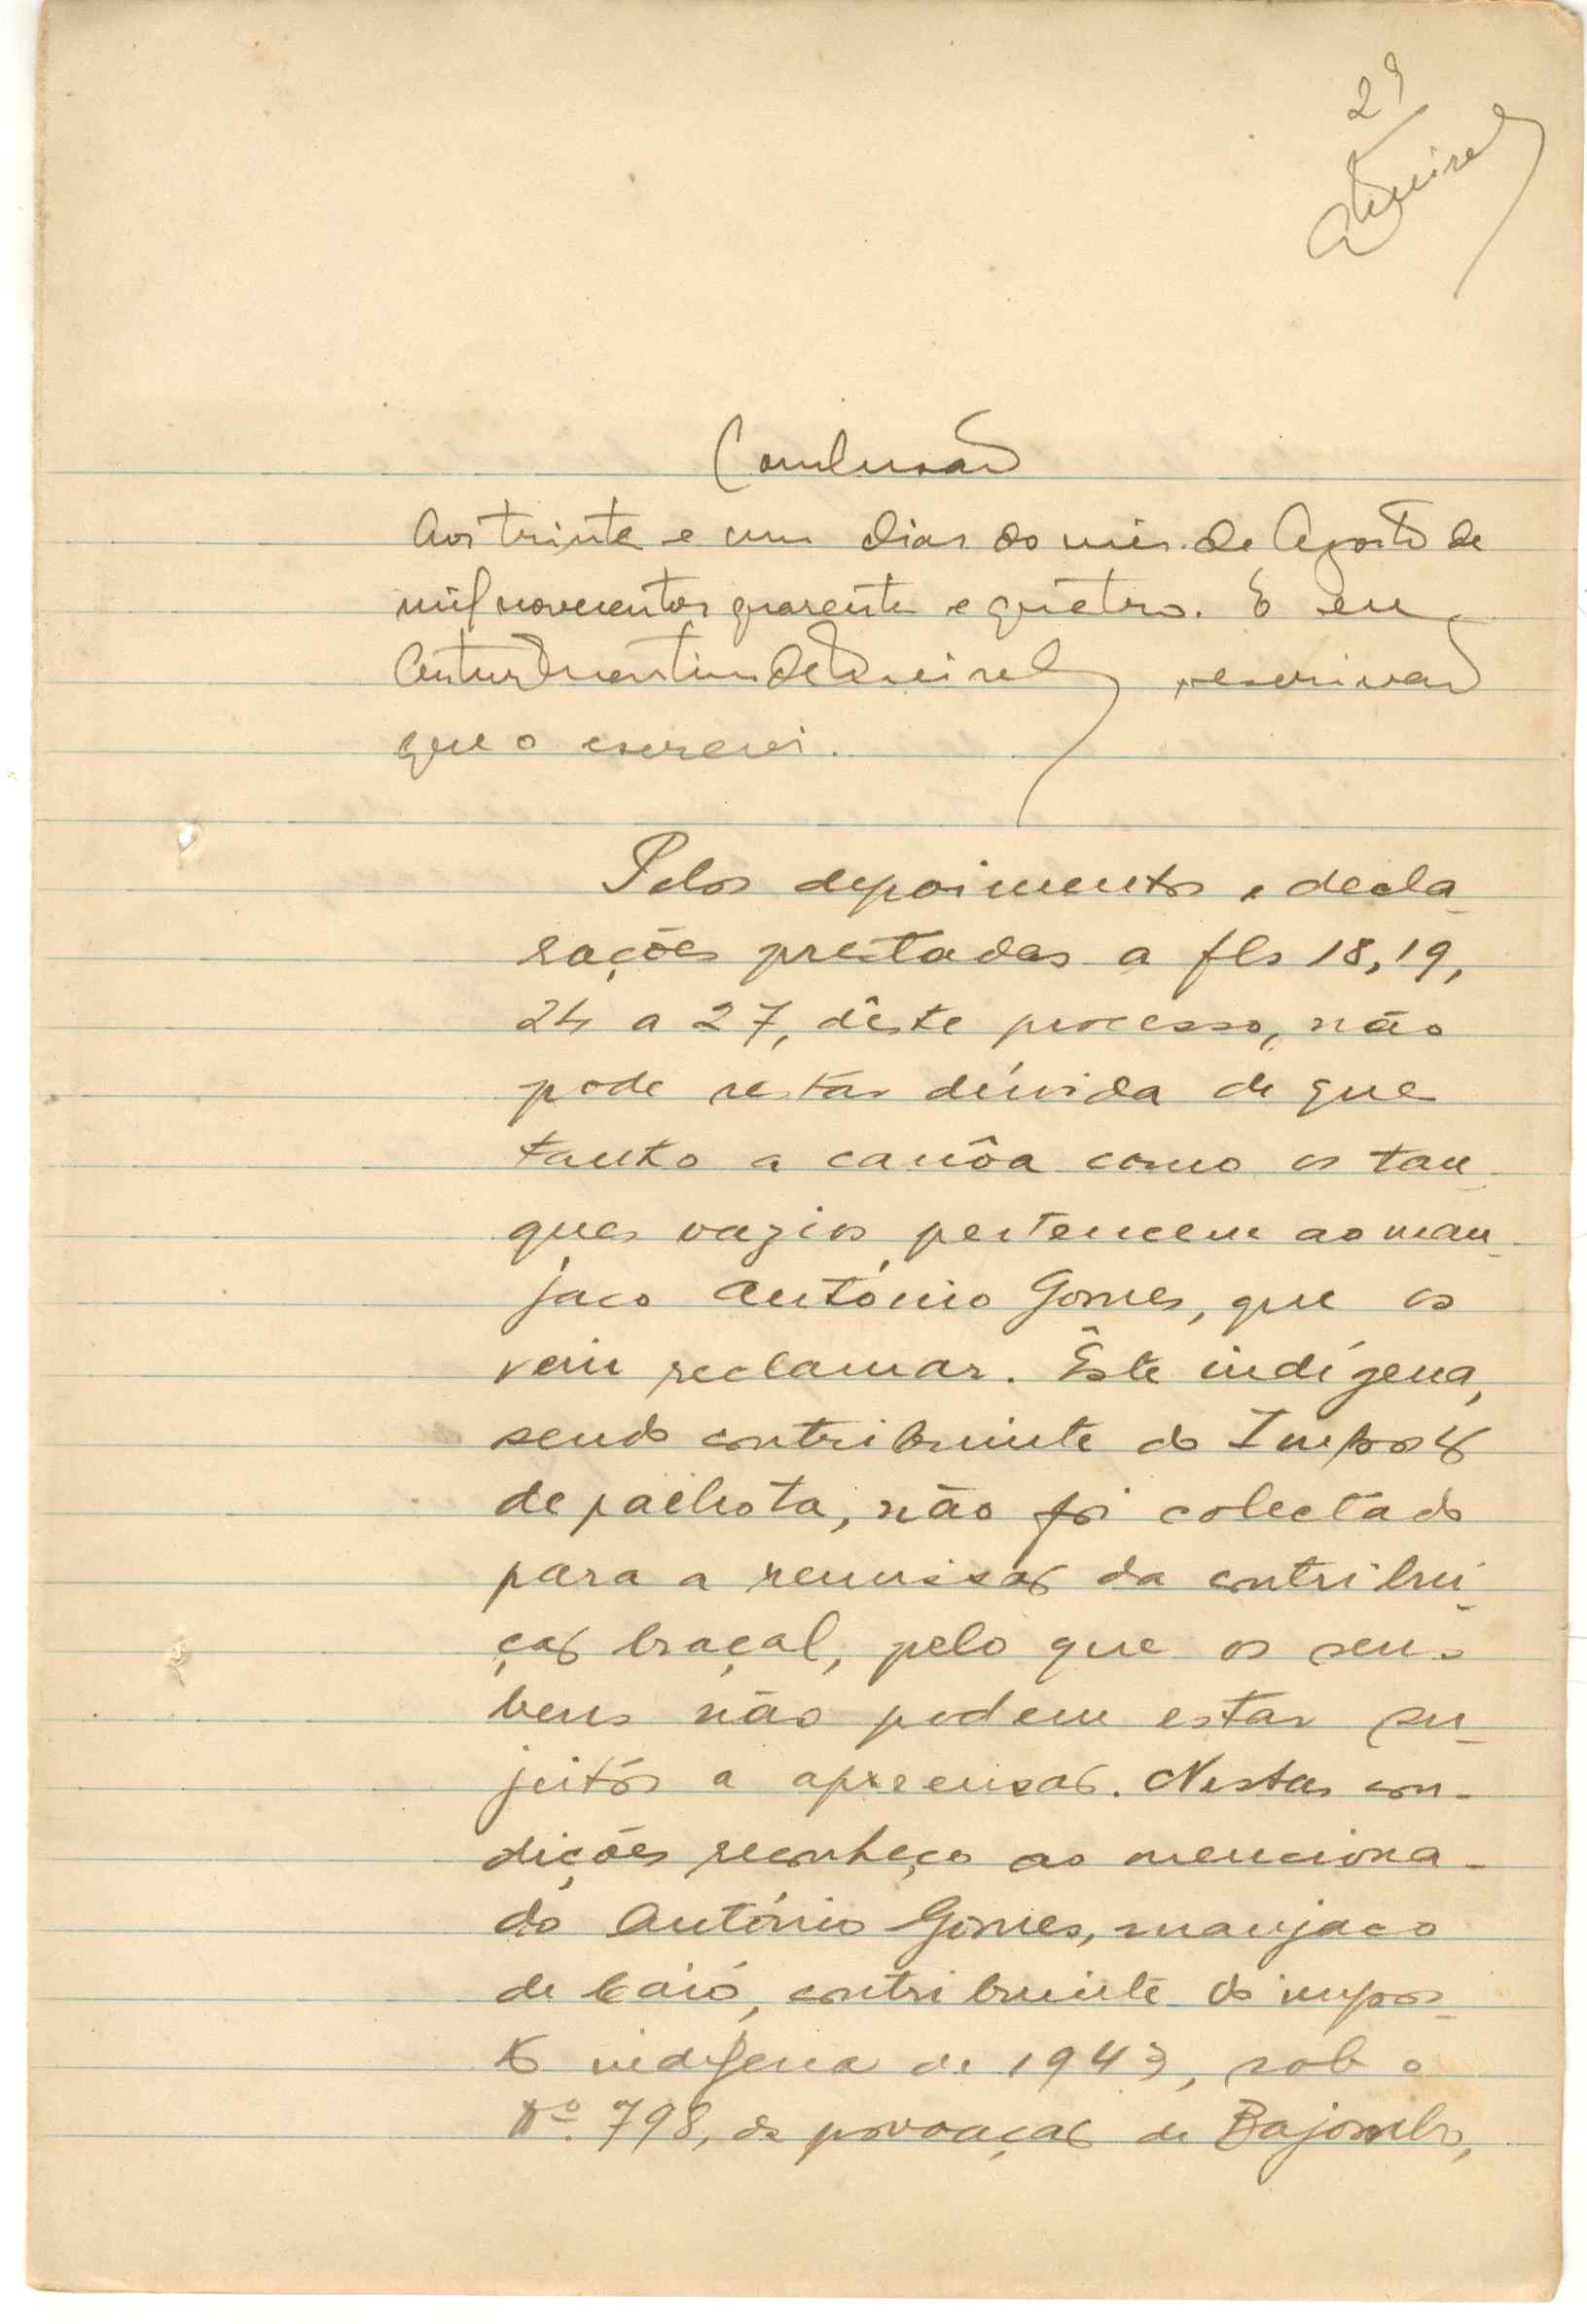 29
Queirel
Conclusão
Aos trinta e um dias do mês de Agosto de
mil novecentos quarenta e quatro. E eu
Artur Martins de Queirel, escrivão
que o escrevi.
Pelos depoimentos e decla-
rações prestadas a fls 18, 19,
24 a 27, dêste processo, não
pode restar dúvida de que
tanto a canôa como os tan-
ques vazios, pertencem ao man-
jaco António Gomes, que os
vem reclamar. Êste indígena,
sendo contribuinte do Imposto
de palhota, não foi colectado
para a remissão da contribui-
ção braçal, pelo que os seus
bens não podem estar su-
jeitos a apreensão. Nestas con-
dições reconheço ao menciona-
do António Gomes, manjaco
de Caió, contribuinte do impos-
to indígena de 1943, sob o
Nº. 798, da povoação de Bajombo,